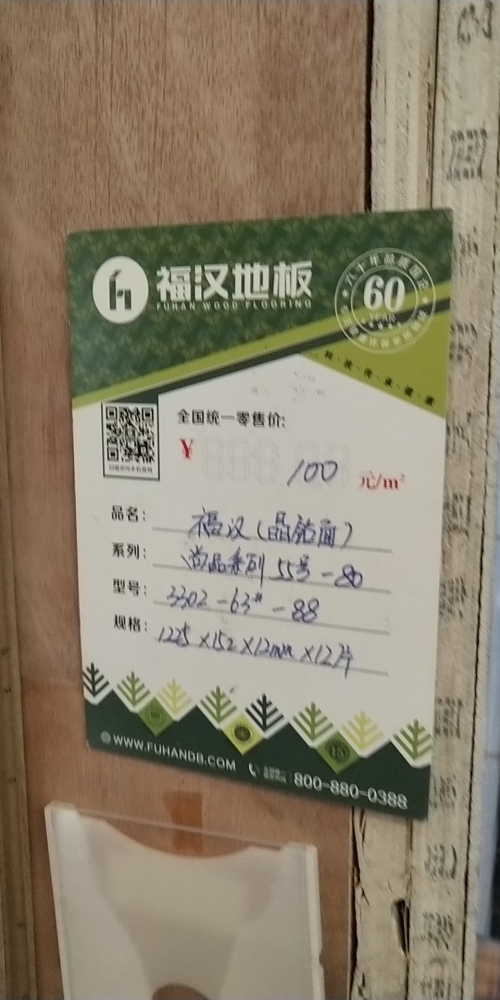 福汉地板
FUHAN WOOD FLOORING
60
全国统一零售价:
¥ 100 元/m²
品名: 福汉(晶钻面)
系列: 尚品系列 55号-80
型号: 3302-63#-88
规格: 1225×152×12mm×12片
WWW.FUHANDB.COM
800-880-0388